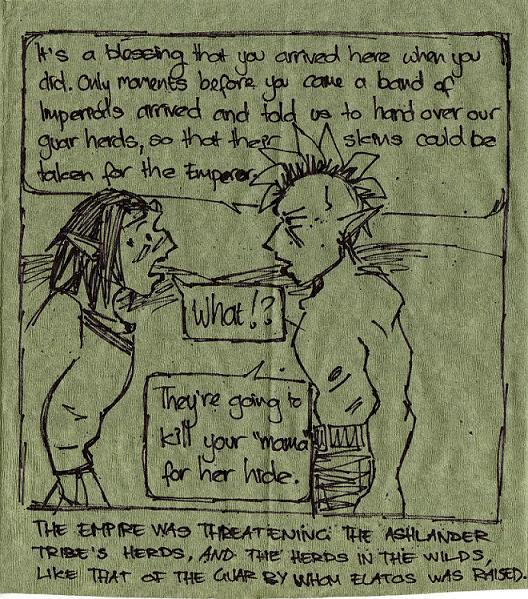 It's a blessing that you arrived here when you
did. Only moments before you came a band of
Imperials arrived and told us to hand over our
guar herds, so that their skins could be
taken for the Emperor.
What!?
They're going to
kill your "mama"
for her hide.
THE EMPIRE WAS THREATENING THE ASHLANDER
TRIBE'S HERDS, AND THE HERDS IN THE WILDS,
LIKE THAT OF THE GUAR BY WHOM ELATOS WAS RAISED.